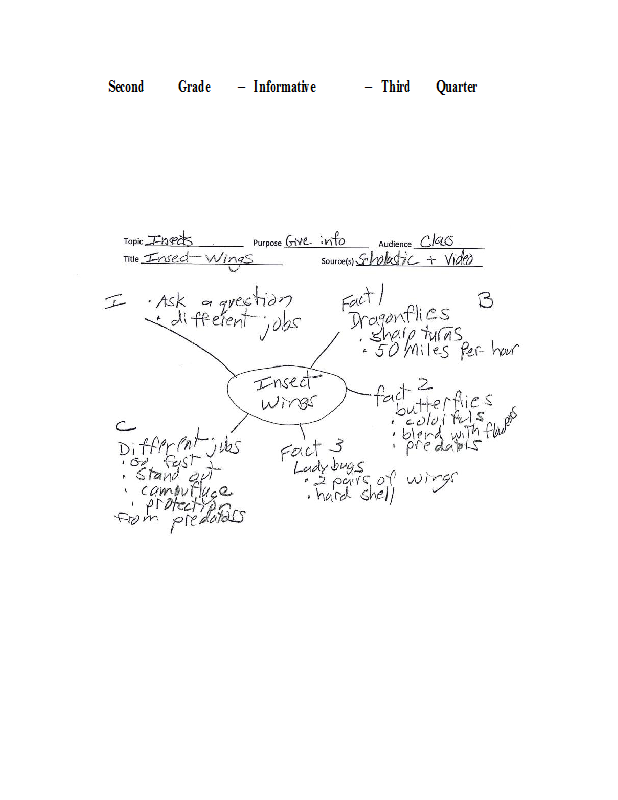 Second Grade – Informative – Third Quarter
Topic Insects Purpose Give info Audience Class
Title Insect Wings Source(s) Scholastic + Video
I · Ask a question
· different jobs
Fact 1
Dragonflies
· sharp turns
· 50 Miles Per hour
B
Insect
Wings
fact 2
butterflies
· colorfuls
· blend with flowers
· predators
C
Different jobs
· go fast
· Stand out
· camouflage
· protection
from predators
Fact 3
Ladybugs
· 2 pairs of wings
· hard shell